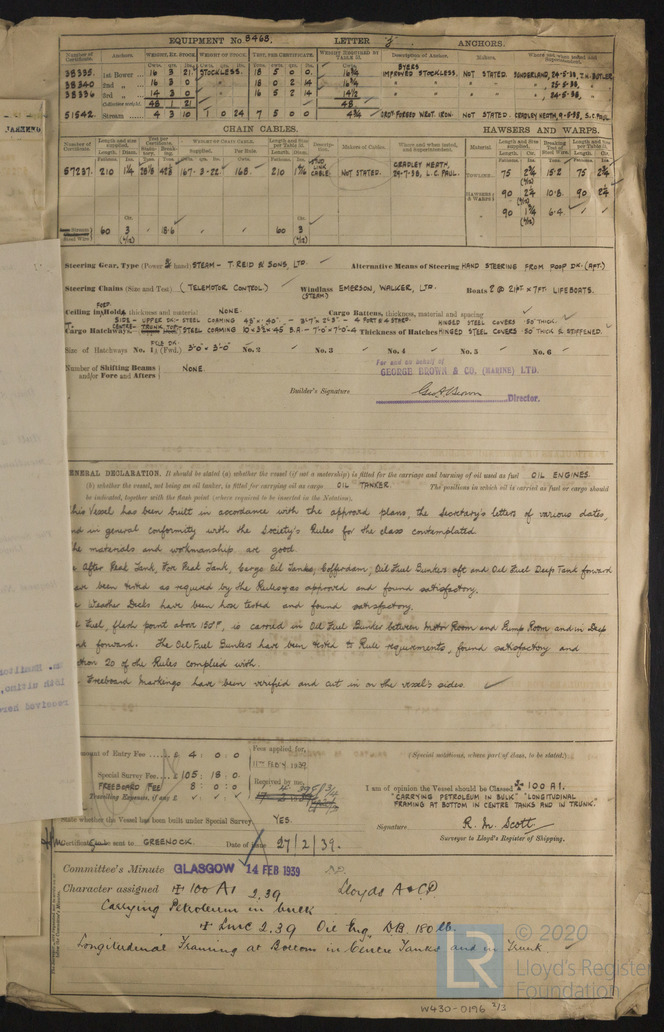 EQUIPMENT No. 8465. LETTER y. ANCHORS.
Number of Certificate. Anchors. WEIGHT, EX. STOCK. WEIGHT OF STOCK. TEST, PER CERTIFICATE. WEIGHT REQUIRED BY TABLE 53. Description of Anchor. Makers. Where and when tested and Superintendent.
38335. 1st Bower 16 3 21 STOCKLESS. 18 5 0 0. 16¾ BYERS IMPROVED STOCKLESS. NOT STATED. SUNDERLAND, 24-5-38, J.H. BUTLER.
38340 2nd „ 16 3 0 18 0 2 14 16¾ „ „ 25-5-38. „
38336 3rd „ 14 3 0 16 5 2 14 14½ „ „ 24-5-38. „
Collective weight. 48 1 21 48
51542. Stream 4 3 10 1 0 24 7 5 0 0 4¾ NOT STATED. CRADLEY HEATH, 9-5-38, S.C. PAUL.
CHAIN CABLES. HAWSERS AND WARPS.
57237. 210 167-3-22 168. 210 STUD LINK CABLE NOT STATED. CRADLEY HEATH, 24-7-38, L.C. PAUL. TOWLINE 75 2¾ 15.2 75 2¾
HAWSERS & WARPS 90 2¼ 10.8 90 2¼
90 1¾ 6.4
Stream Steel Wire 60 3 18.6 60 3
Steering Gear, Type (Power & hand) STEAM - T. REID & SONS, LTD. Alternative Means of Steering HAND STEERING FROM POOP DK. (AFT.)
Steering Chains (Size and Test) (TELEMOTOR CONTROL) Windlass (STEAM) EMERSON, WALKER, LTD. Boats 2 @ 21FT. x 7FT LIFEBOATS.
Ceiling in Hold, thickness and material NONE. Cargo Battens, thickness, material and spacing
SIDE - UPPER DK - STEEL COAMING 45" x .40" - 3'-7" x 2'-3" - 4 PORT & 4 STARD. HINGED STEEL COVERS .50" THICK
Cargo Hatchways CENTRE - TRUNK TOP - STEEL COAMING 10 x 3½ x .45 B.A - 7'-0" x 7'-0" - 4 Thickness of Hatches HINGED STEEL COVERS .50" THICK & STIFFENED.
Size of Hatchways No. 1 (Fwd.) FCLE DK. 3'-0" x 3'-0" No. 2 No. 3 No. 4 No. 5 No. 6
Number of Shifting Beams and/or Fore and Afters NONE.
For and on behalf of
GEORGE BROWN & CO. (MARINE) LTD.
Builder's Signature Geo. A. Brown Director.
GENERAL DECLARATION. It should be stated (a) whether the vessel (if not a motorship) is fitted for the carriage and burning of oil used as fuel OIL ENGINES.
(b) whether the vessel, not being an oil tanker, is fitted for carrying oil as cargo OIL TANKER. The positions in which oil is carried as fuel or cargo should
be indicated, together with the flash point (where required to be inserted in the Notation).
This Vessel has been built in accordance with the approved plans, the Secretary's letters of various dates,
and in general conformity with the Society's Rules for the class contemplated.
The materials and workmanship are good.
After Peak Tank, Fore Peak Tank, Cargo Oil Tanks, Cofferdam, Oil Fuel Bunkers aft and Oil Fuel Deep Tank forward
have been tested as required by the Rules & as approved and found satisfactory.
Weather Decks have been hose tested and found satisfactory.
Fuel, flash point above 150°F, is carried in Oil Fuel Bunker between Motor Room and Pump Room and in Deep
forward. The Oil Fuel Bunkers have been tested to Rule requirements, found satisfactory and
Section 20 of the Rules complied with.
Freeboard Markings have been verified and cut in on the vessel's sides
Amount of Entry Fee £ 4 : 0 : 0 Fees applied for, 11 FEB 1939 (Special notations, where part of class, to be stated.)
Special Survey Fee £ 105 : 18 : 0 Received by me,
FREEBOARD FEE 8 : 0 : 0
Travelling Expenses, if any £
I am of opinion the Vessel should be Classed ✠ 100 A1.
"CARRYING PETROLEUM IN BULK" "LONGITUDINAL
FRAMING AT BOTTOM IN CENTRE TANKS AND IN TRUNK.
State whether the Vessel has been built under Special Survey YES.
Signature R. M. Scott.
Surveyor to Lloyd's Register of Shipping.
Certificate to be sent to GREENOCK. Date of issue 27/2/39.
Committee's Minute GLASGOW 14 FEB 1939
Character assigned ✠ 100 A1 2.39 Lloyds A & CP.
Carrying Petroleum in bulk
✠ LMC 2.39 Oil Eng. DB. 180 lb.
Longitudinal Framing at Bottom in Centre Tanks and in Trunk.
© 2020
LR Lloyd's Register
Foundation
W430-0196 2/3